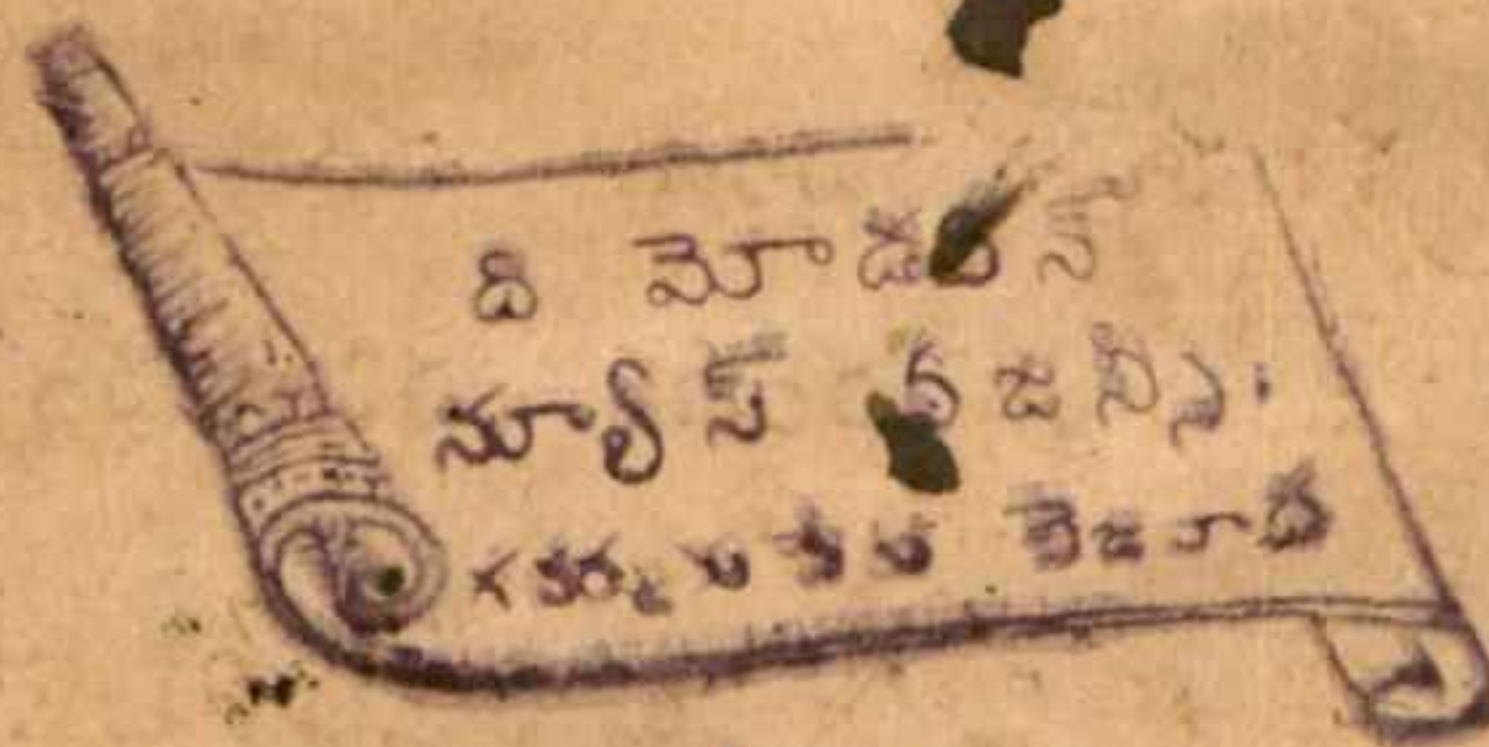 ది మోడరన్
న్యూస్ ఏజన్సి.
గవర్నరుపేట బెజవాడ